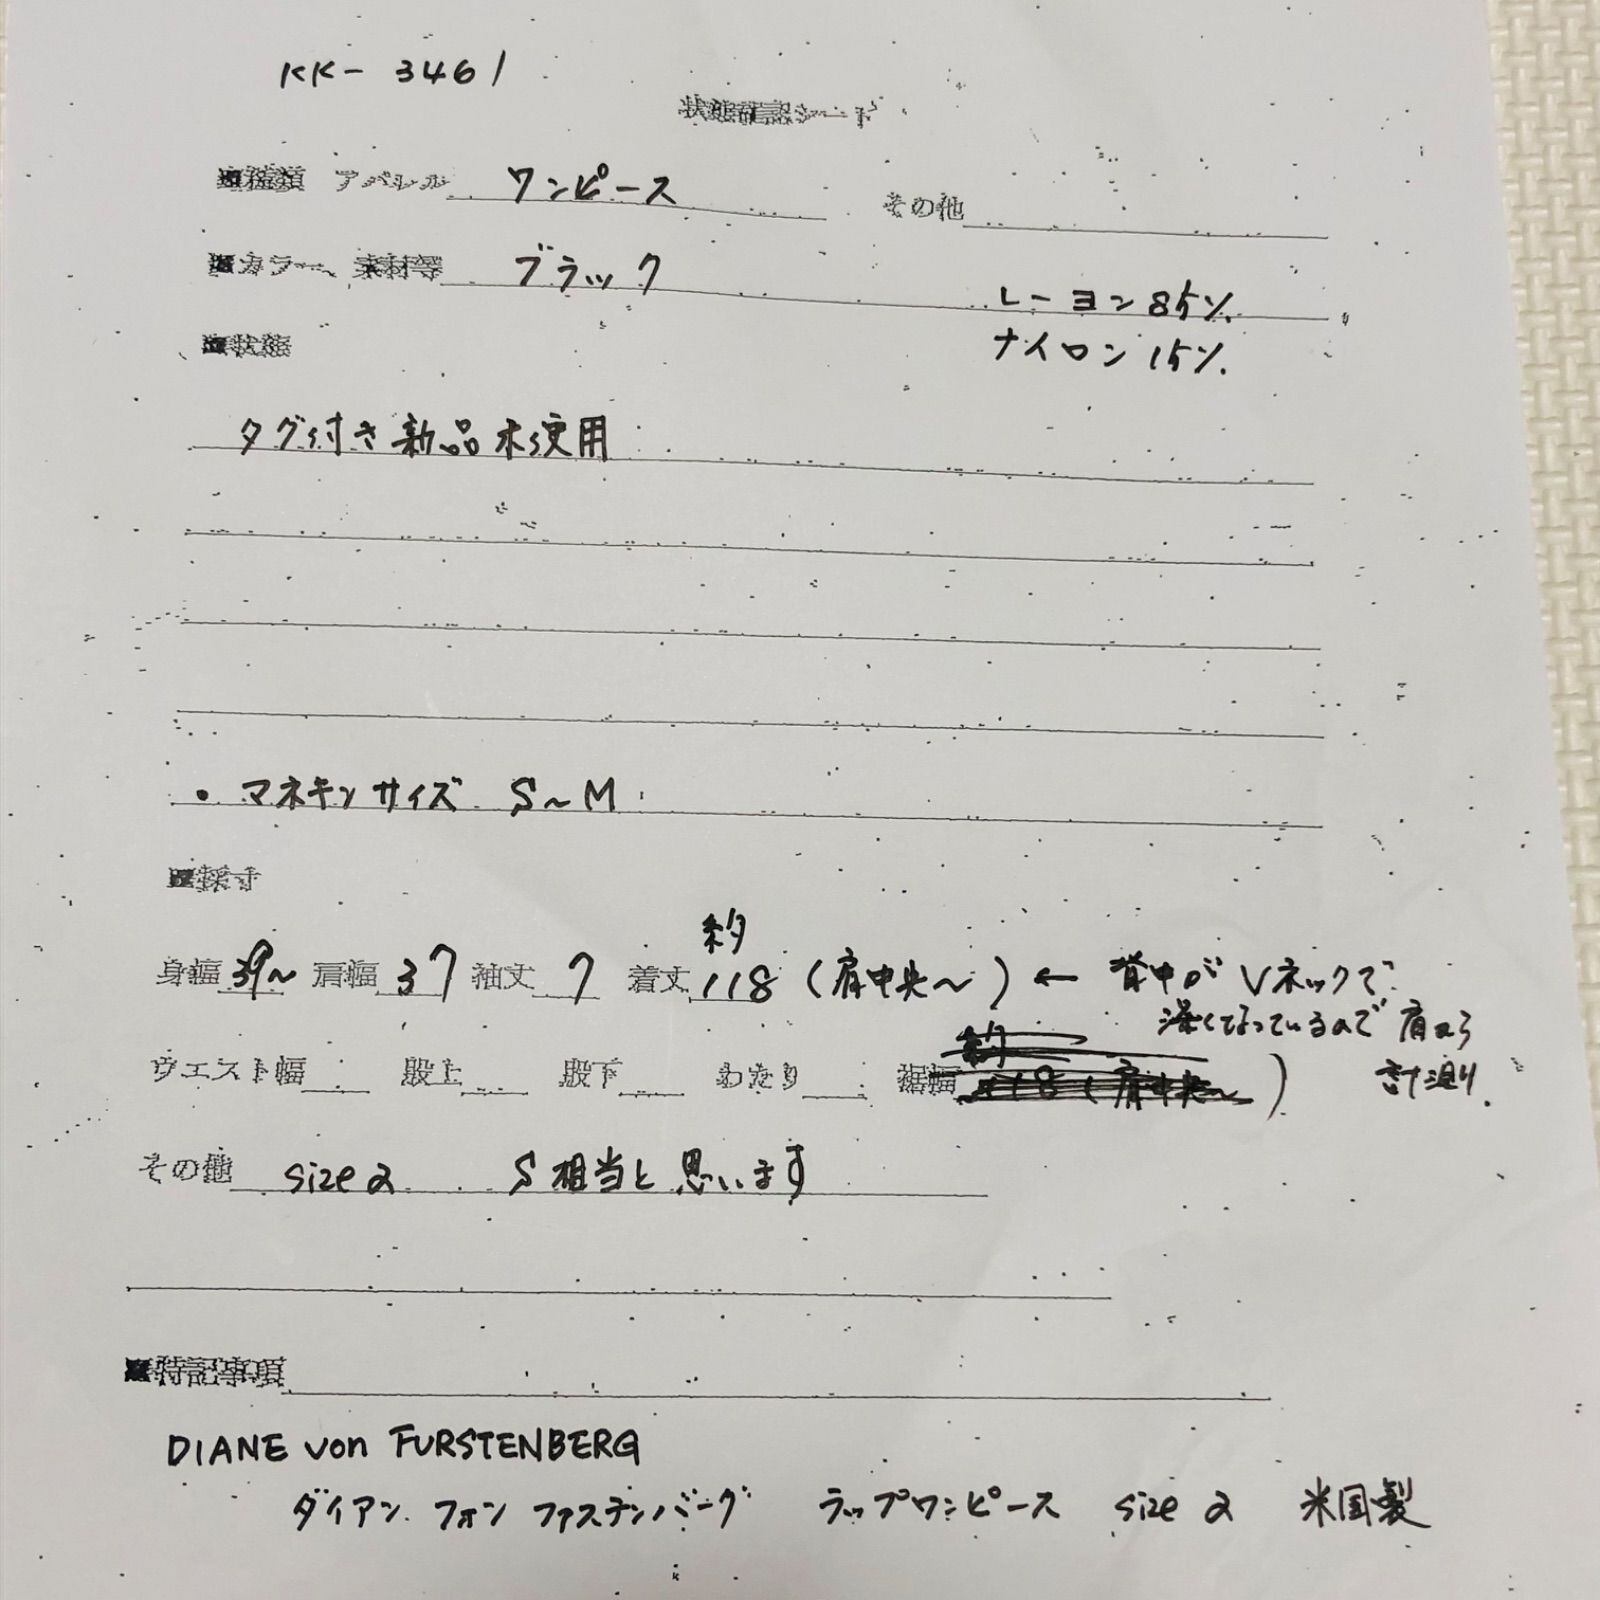 KK- 3461
状態確認シード
■種類 アパレル ワンピース その他
■カラー、素材等 ブラック レーヨン85%
ナイロン15%
■状態
タグ付き新品未使用
・マネキンサイズ S~M
■採寸
約
身幅 39~ 肩幅 37 袖丈 7 着丈 118 (肩中央~) ← 背中がVネックで
深くなっているので肩より
計測り.
約
ウエスト幅 股上 股下 わたり 裾幅 118 (肩中央~)
その他 size 2 S相当と思います
■特記事項
DIANE von FURSTENBERG
ダイアン フォン ファステンバーグ ラップワンピース size 2 米国製